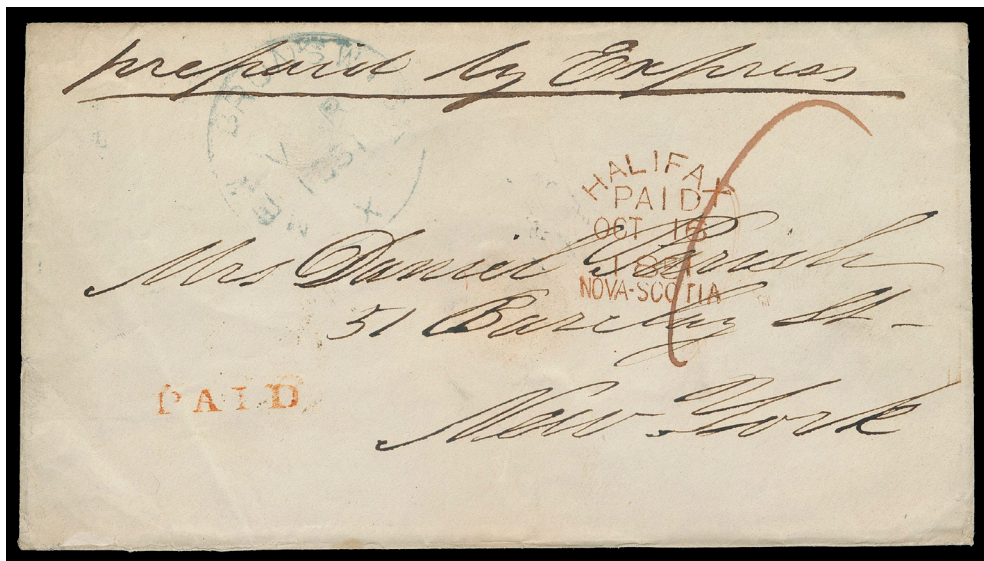 prepaid by Express
HALIFAX
PAID
OCT 16
1851
NOVA-SCOTIA
Mrs Daniel Parish
51 Barclay St-
New York
PAID